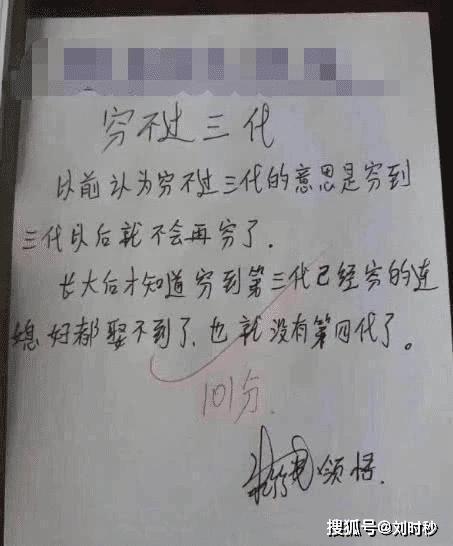 穷不过三代
以前认为穷不过三代的意思是穷到
三代以后就不会再穷了.
长大后才知道穷到第三代已经穷的连
媳妇都娶不到了,也就没有第四代了。
101分.
领悟.
搜狐号@刘时秒